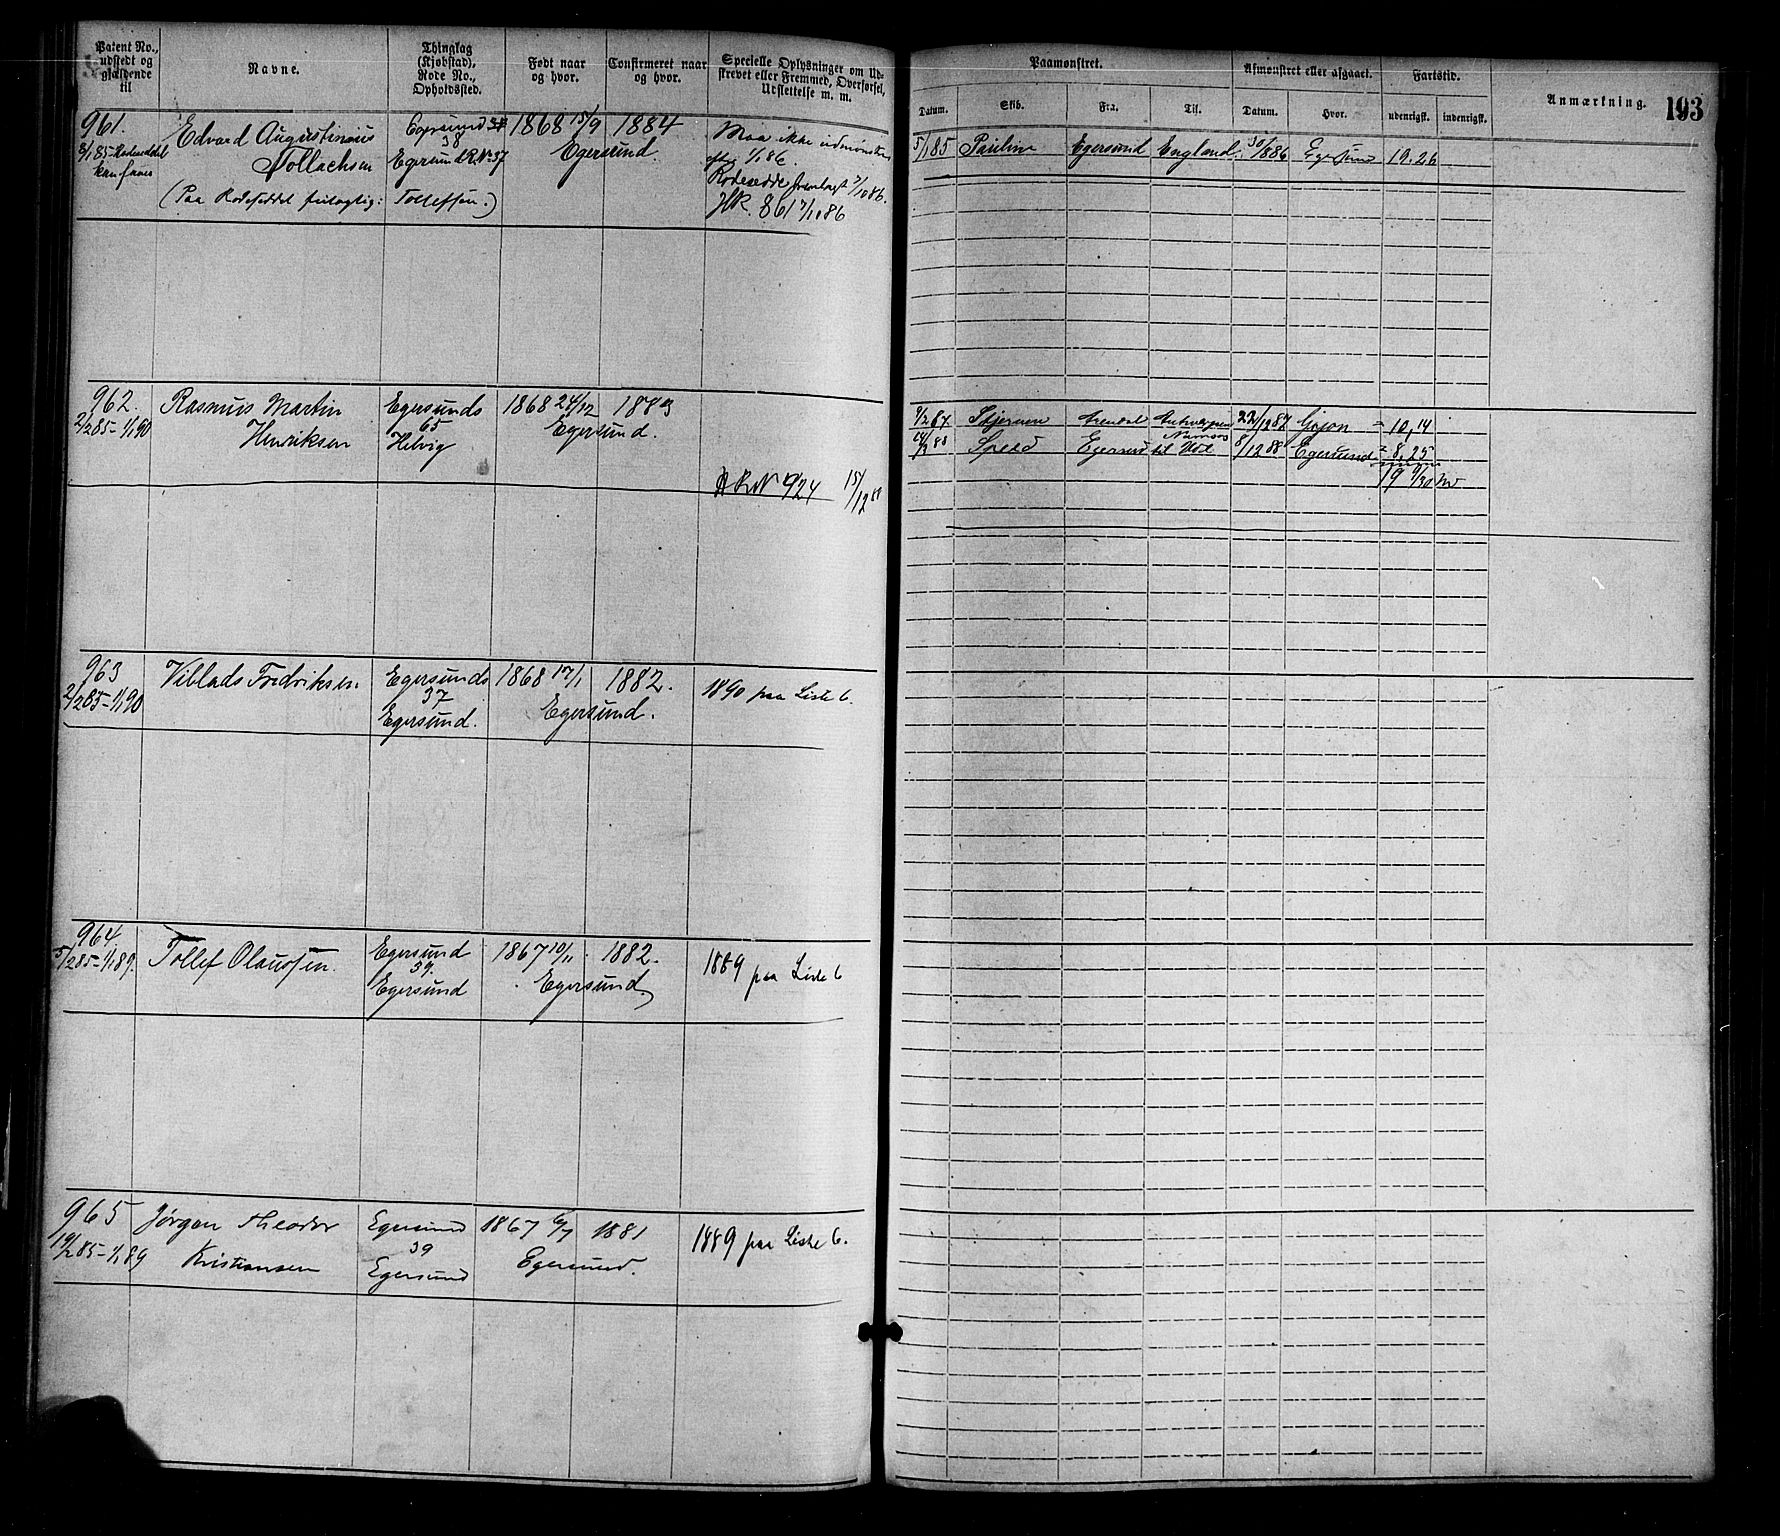 Patent No., udstedt og gjældende til
Navne.
Thinglag (Kjøbstad), Rode No., Opholdssted.
Født naar og hvor.
Confirmeret naar og hvor.
Specielle Oplysninger om Udskrevet eller Fremmed, Overførsel, Udslettelse m. m.
Paamønstret.
Afmønstret eller afgaaet.
Fartstid.
Anmærkning.
193
Datum.
Skib.
Fra.
Til.
Datum.
Hvor.
udenrigsk.
indenrigsk.
961.
Edvard Augustinius
Tollachsen
(Paa Rodeseddel
Tollefsen.)
Egersund
38
Egersund R No 37
1868 15/9
1884
Egersund.
Maa ikke udmønstres
efter 1/1 86.
Rodeseddel fremlagt 7/10 86.
5/1 85
Pauline
Egersund
England
Egersund
19.26
962.
2/2 85 - 1/1 90
Rasmus Martin
Henriksen
Egersunds
65
Helvig
1868 24/12
1883
Egersund.
15/12 88
9/2 87
Arendal
Antwerpen
22/12 87
Gijon
10,14
Speed
Egersund
til
8/12 88
Egersund
8,25
963
2/2 85 - 1/1 90
Viblads Fredriksen.
Egersunds
37
Egersund.
1868 17/1
1882.
Egersund.
1890 paa Liste 6.
964
5/2 85 - 1/1 89.
Tollef Olaussen.
Egersund
39.
Egersund
1867 10/11
1882.
Egersund.
1889 paa Liste 6
965
19/2 85 - 1/1 89
Jørgen Theodor
Kristiansen
Egersund
39
Egersund
1867 6/7
1881
Egersund.
1889 paa Liste 6.